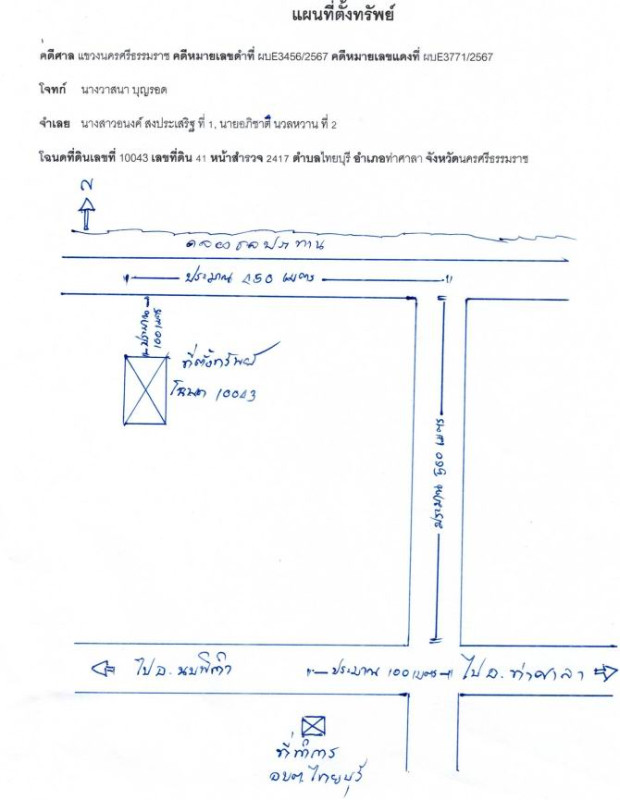 แผนที่ตั้งทรัพย์
คดีศาล แขวงนครศรีธรรมราช คดีหมายเลขดำที่ ผบE3456/2567 คดีหมายเลขแดงที่ ผบE3771/2567
โจทก์ นางวาสนา บุญรอด
จำเลย นางสาวอนงค์ สงประเสริฐ ที่ 1, นายอภิชาติ นวลหวาน ที่ 2
โฉนดที่ดินเลขที่ 10043 เลขที่ดิน 41 หน้าสำรวจ 2417 ตำบลไทยบุรี อำเภอท่าศาลา จังหวัดนครศรีธรรมราช
N
คลองชลประทาน
ประมาณ 450 เมตร
ประมาณ
100 เมตร
ที่ตั้งทรัพย์
โฉนด 10043
ประมาณ 550 เมตร
ไป อ. นบพิตำ
ประมาณ 100 เมตร
ไป อ. ท่าศาลา
ที่ทำการ
อบต. ไทยบุรี